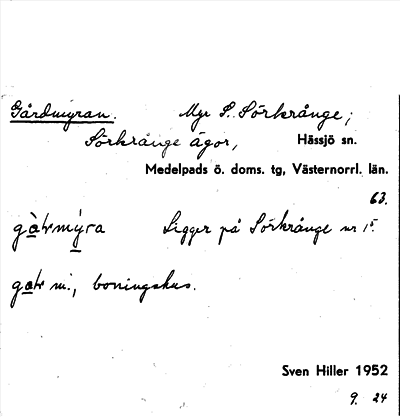 Gårdmyran. Myr S. Sörkrånge;
Sörkrånge ägor, Hässjö sn.
Medelpads ö. doms. tg, Västernorrl. län.
63.
Ligger på Sörkrånge nr 15
m., boningshus.
Sven Hiller 1952
9. 24